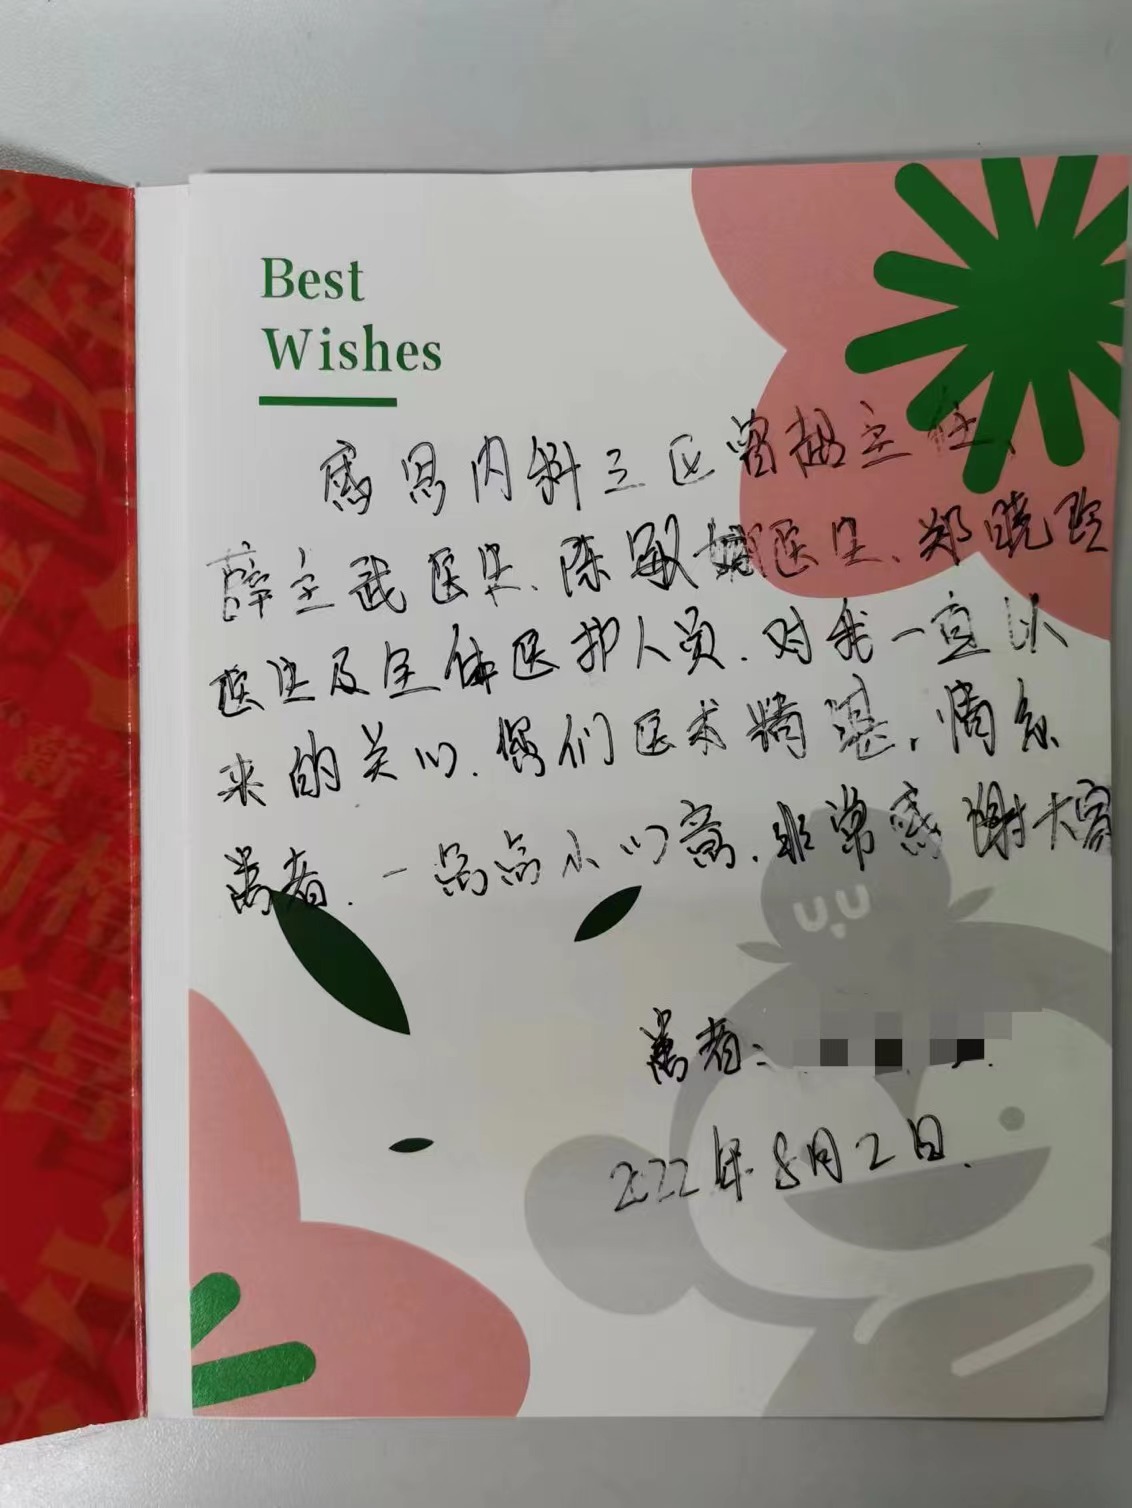 Best
Wishes
感恩内科三区曾超主任、
薛立武医生、陈敏娴医生、郑晓玲
医生及全体医护人员.对我一直以
来的关心.您们医术精湛,情系
患者.一片小心意.非常感谢大家
患者:
2022年8月2日.